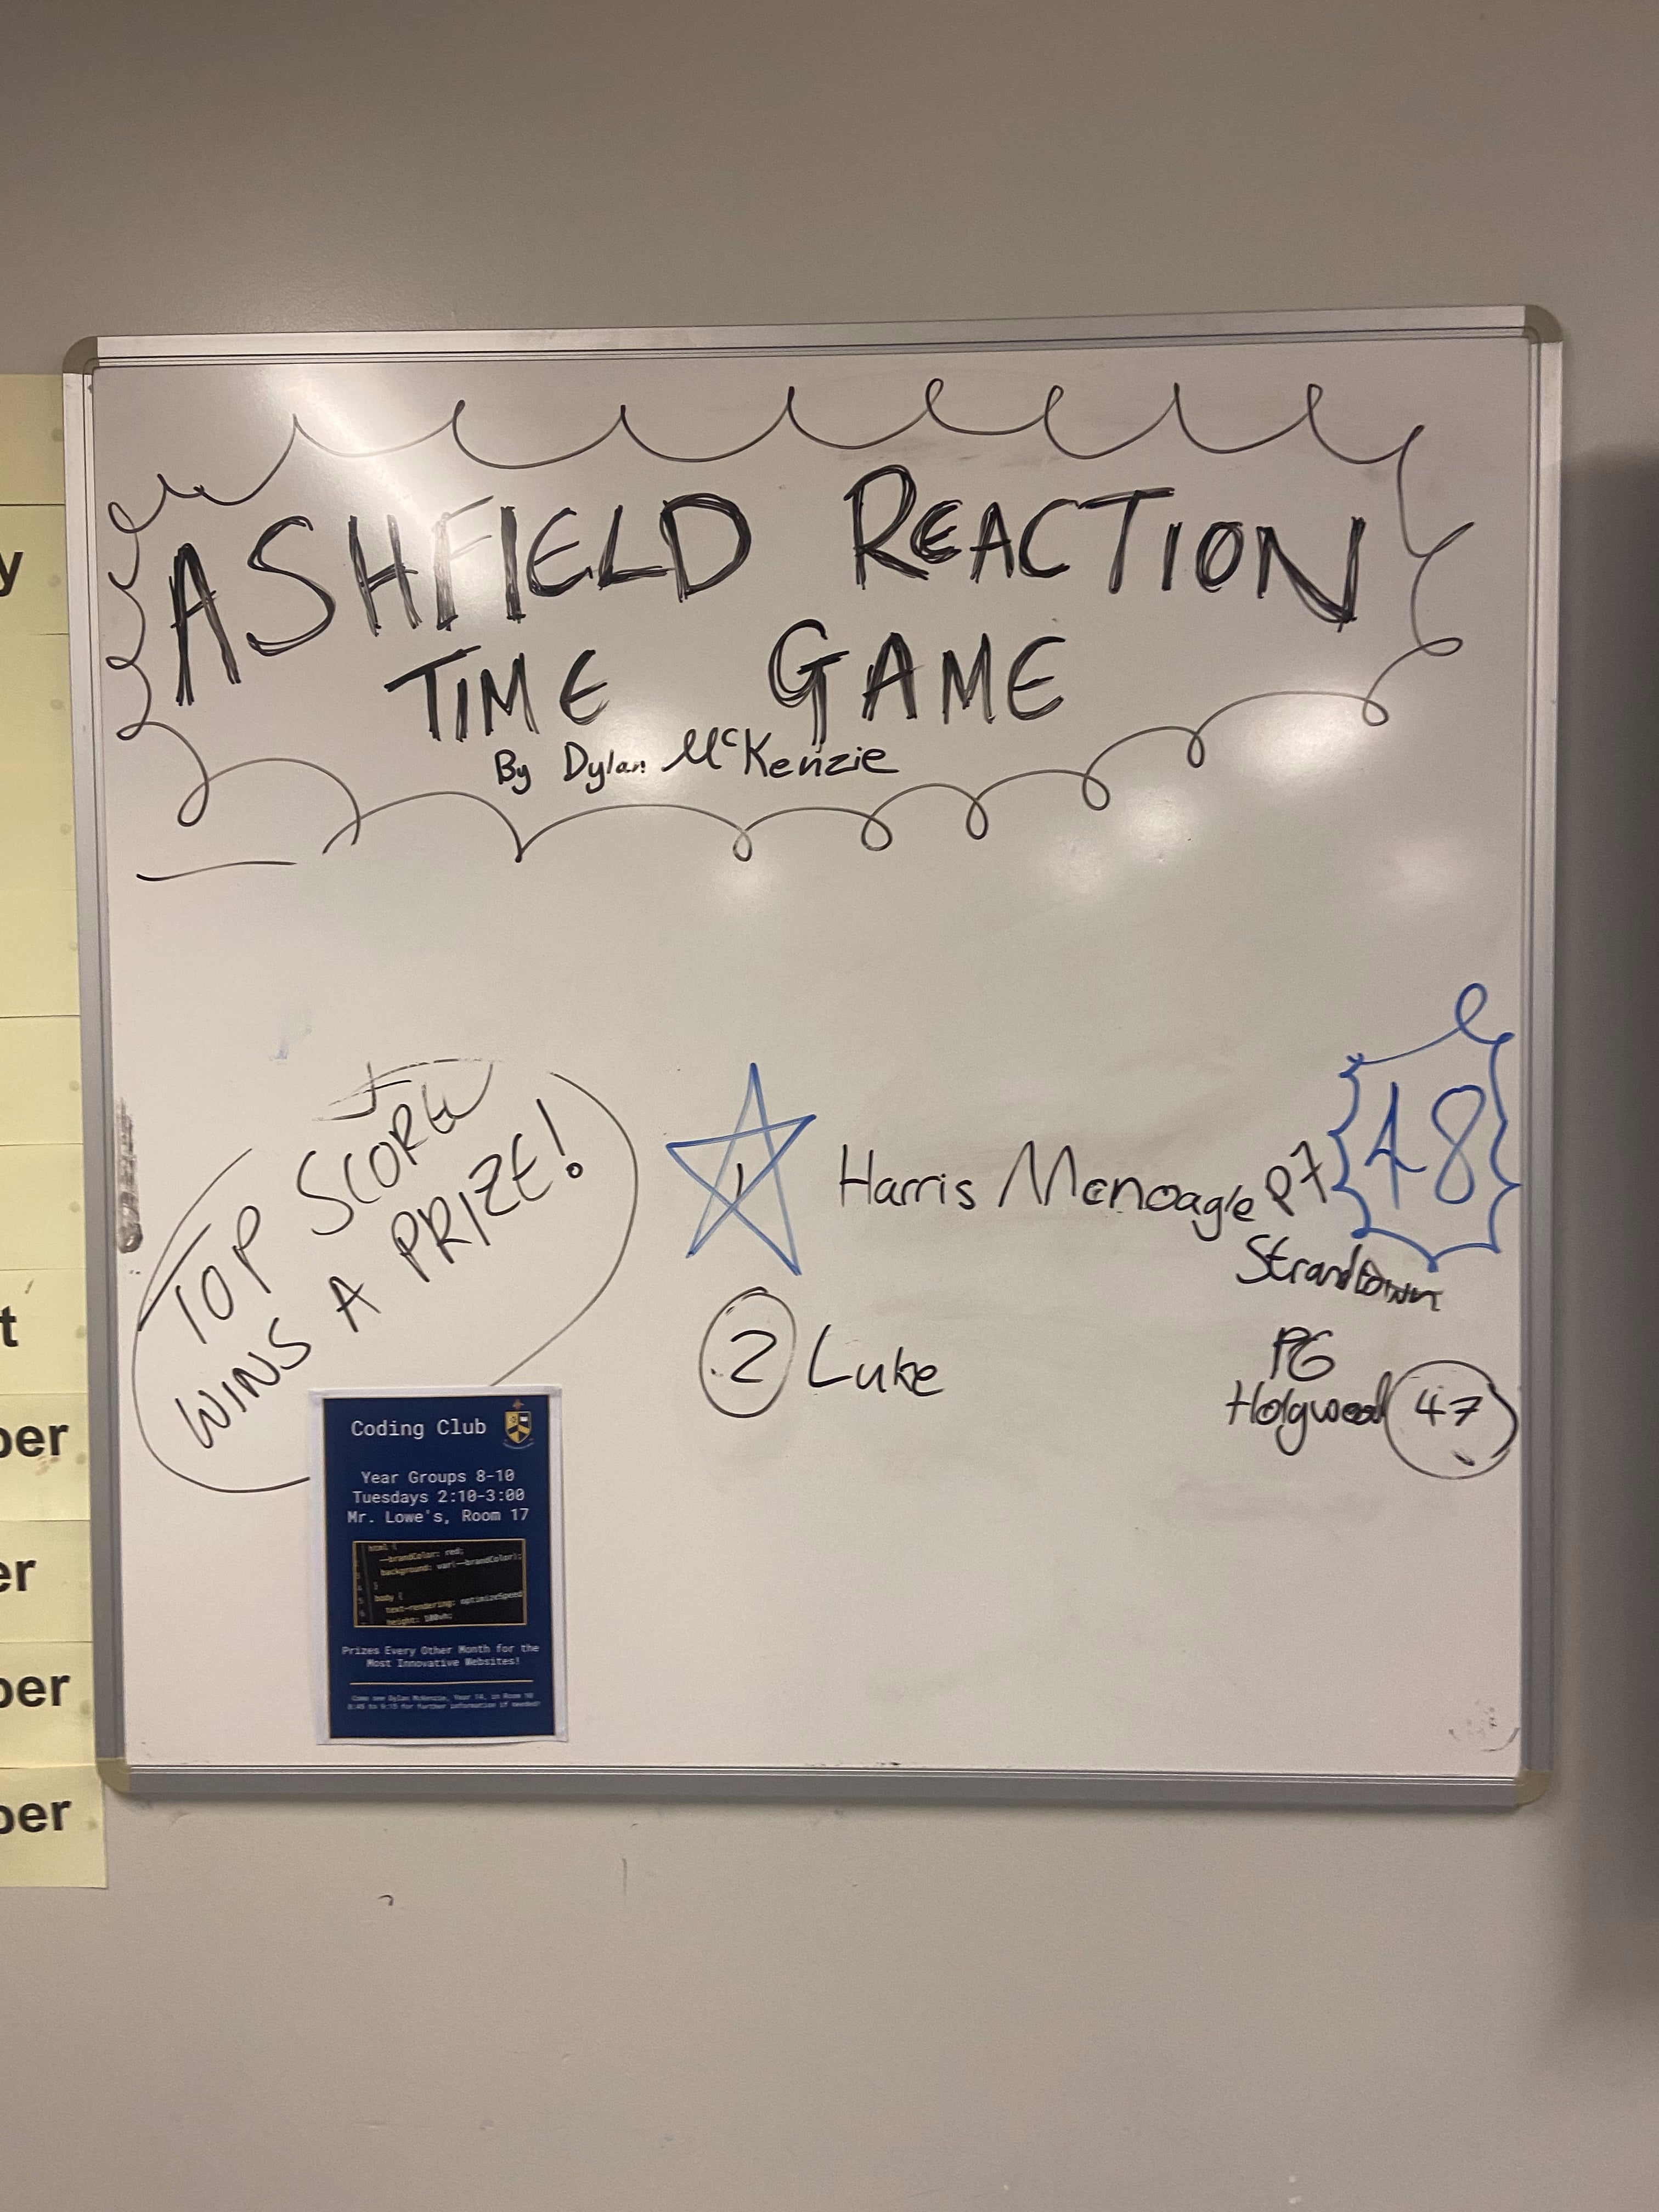 ASHFIELD REACTION
TIME GAME
By Dylan McKenzie
TOP SCORE
WINS A PRIZE!
1 Harris Mcnoagle P7 48
Strandtown
2 Luke
P6
Holywood 47
Coding Club
Year Groups 8-10
Tuesdays 2:10-3:00
Mr. Lowe's, Room 17
html {
--brandColor: red;
background: var(--brandColor);
}
body {
text-rendering: optimizeSpeed
height: 100vh;
Prizes Every Other Month for the
Most Innovative Websites!
Come see Dylan McKenzie, Year 14, in Room 10
8:45 to 9:15 for further information if needed!
y
t
ber
er
ber
ber